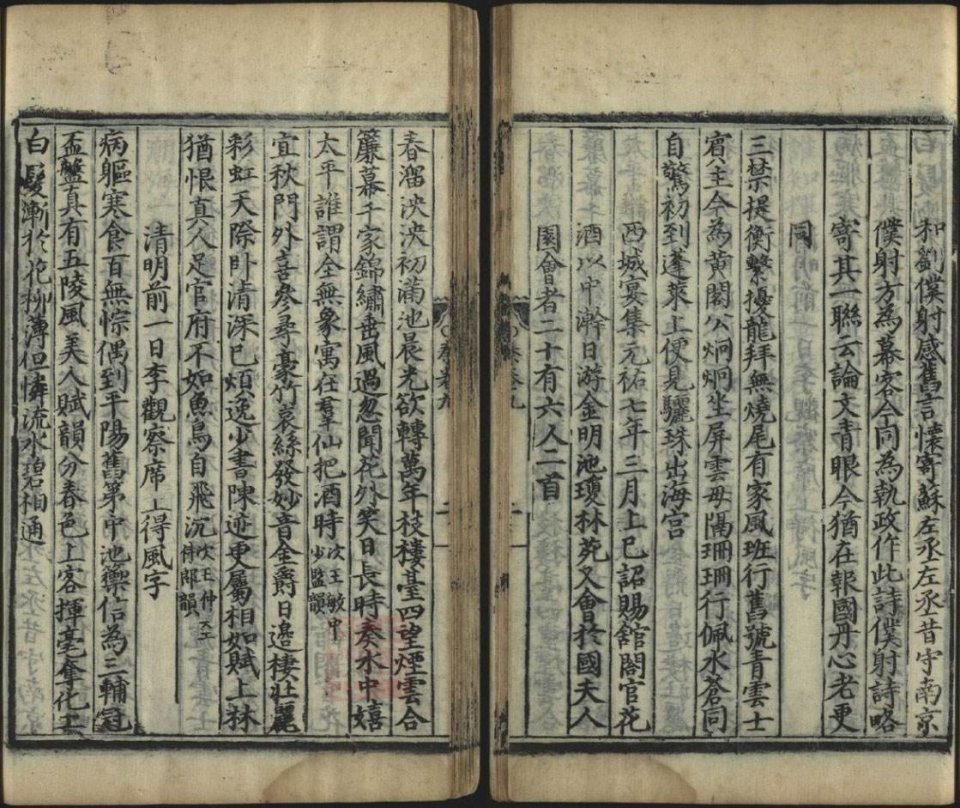 和劉僕射感舊言懷寄蘇左丞左丞昔守南京
僕射方為幕客今同為執政作此詩僕射詩略
寄其一聯云論文青眼今猶在報國丹心老更
同
三禁提衡繫擾龍拜無燒尾有家風班行舊號青雲士
賓主今為黃閣公炯炯坐屏雲毋隔珊珊行佩水蒼同
自驚初到蓬萊上便見驪珠出海宮
西城宴集元祐七年三月上巳詔賜舘閣官花
酒以中澣日游金明池瓊林苑又會於國夫人
園會者二十有六人二首
春溜泱泱初滿池晨光欲轉萬年枝樓臺四望煙雲合
簾幕千家錦繡垂風過忽聞花外笑日長時奏水中嬉
太平誰謂全無象寓在羣仙把酒時次王敏中少監韻
宜秋門外喜參尋豪竹哀絲發妙音金爵日邉棲壯麗
彩虹天際卧清深已煩逸少書陳迹更屬相如賦上林
猶恨真人足官府不如魚鳥自飛沉次王仲至侍郎韻
清明前一日李觀察席上得風字
病軀寒食百無悰偶到平陽舊第中池籞信為三輔冠
盃盤真有五陵風美人賦韻分春色上客揮毫奪化工
白髮漸於花柳薄但憐流水碧相通